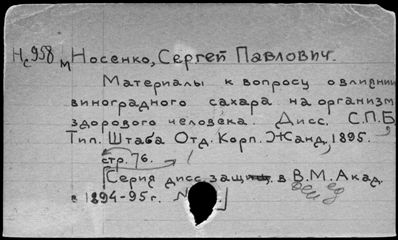 Нс958м Носенко, Сергей Павлович.
Материалы к вопросу о влиянии
виноградного сахара на организм
здорового человека. Дисс. С.П.Б.
Тип. Штаба Отд. Корп. Жанд, 1895.
стр. 76.
[Серия дисс защ. в В.М.Акад.
в 1894-95 г. №]